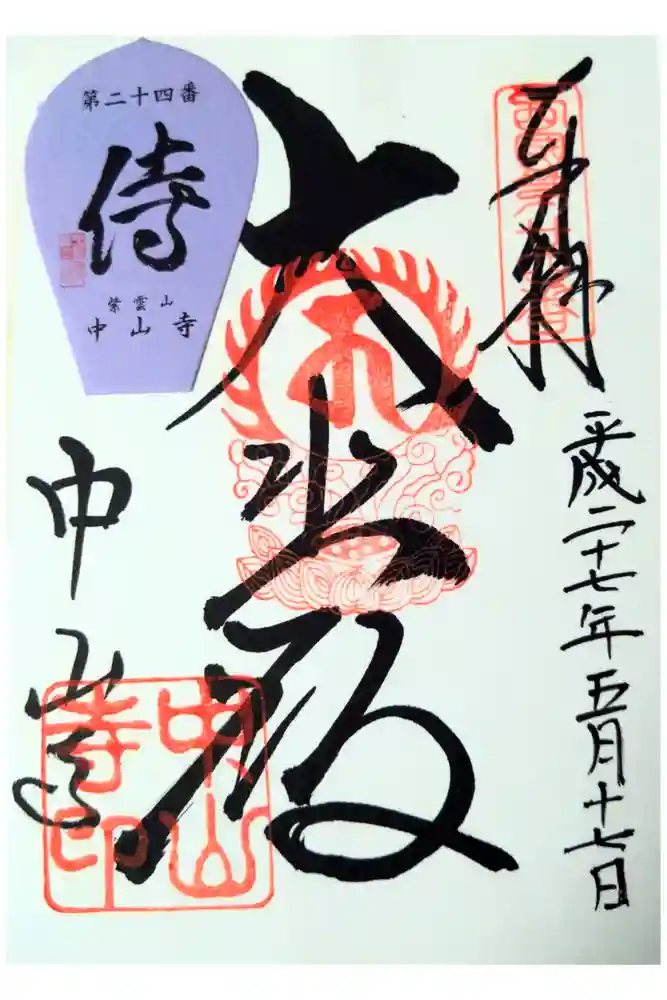 奉拝
平成二十七年五月十七日
大悲殿
中山寺
中山寺印
第二十四番
侍
紫雲山
中山寺